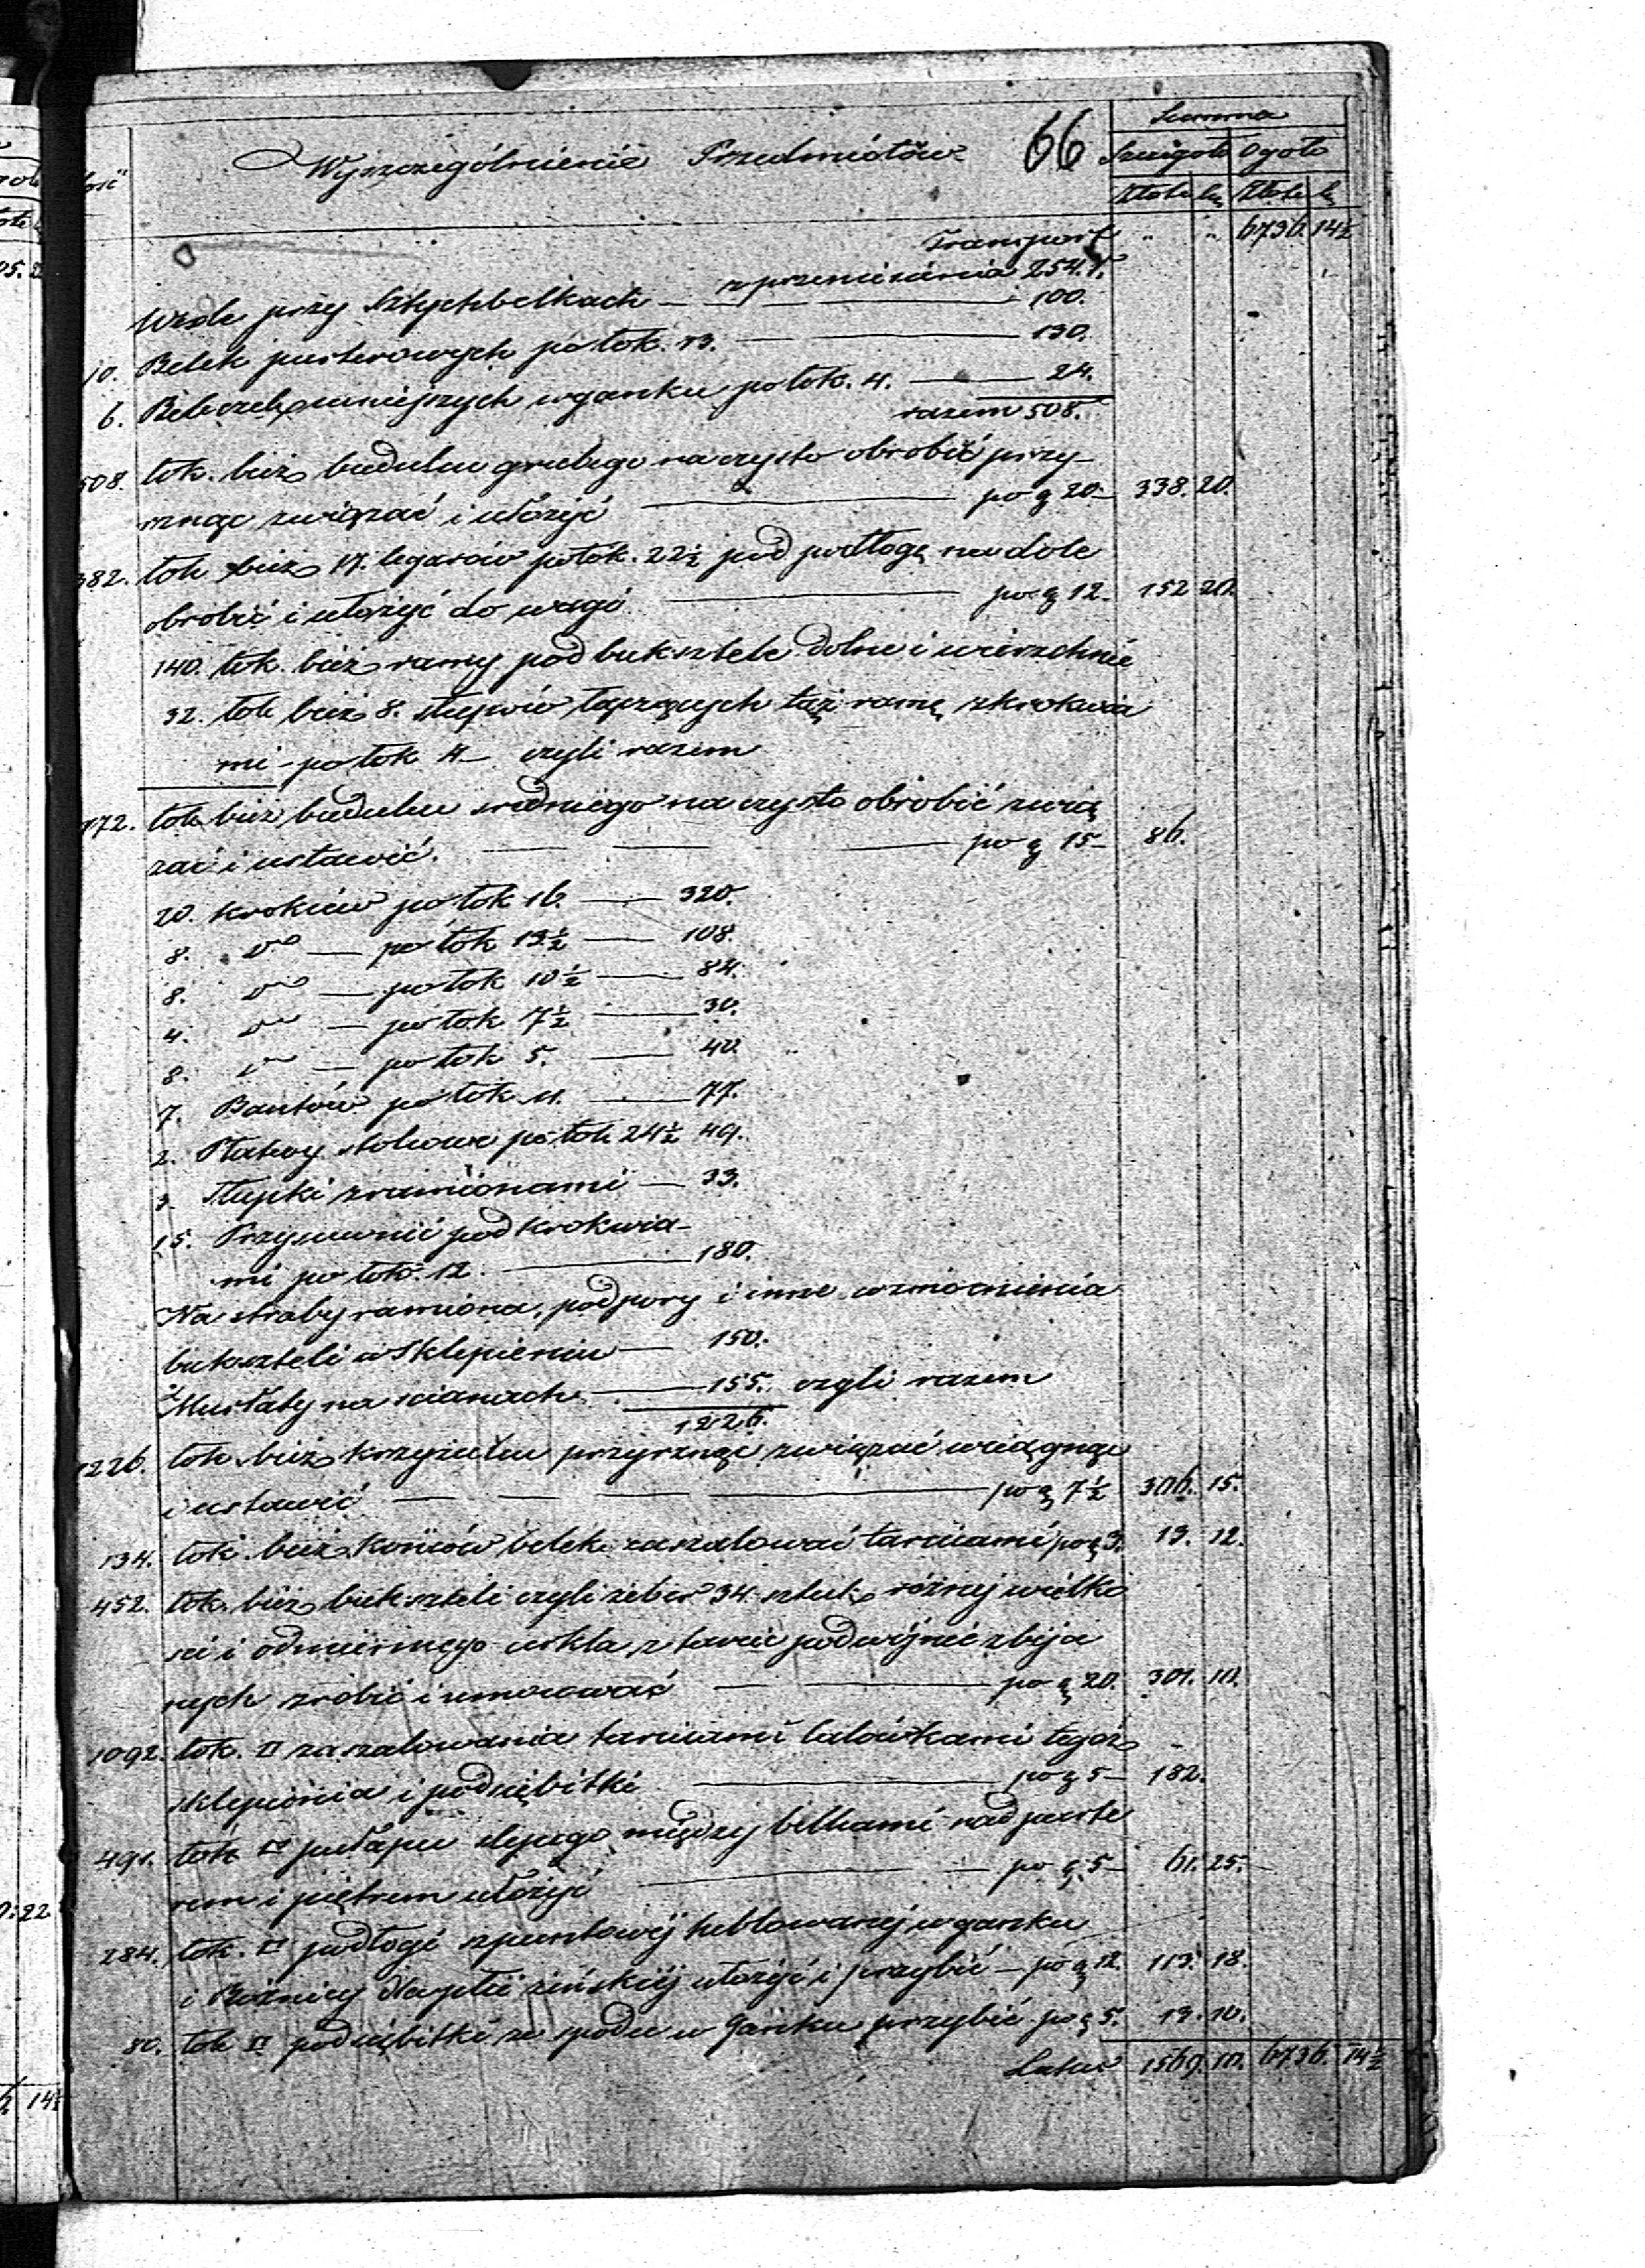 66
Summa
Wyszczególnienie Przedmiotów
Szczegoło Ogoło
Ilość
Złote gr Złote gr
Transport " " 6736. 14½
z przeniesienia 254.
Wzdłe przy Sztychbelkach — 100.
10. Belek pusterowych po łok. 13. — 130.
6. Beleczek mniejszych w ganku po łok. 4. — 24.
razem 508.
508. łok. bież budulcu grubego na czysto obrobić przy-
rznąć związać i ułożyć — po g 20 — 338. 20.
382. łok bież 17. legarów po łok. 22½ pod podłogę na dole
obrobić i ułożyć do wagi — po g 12. 152 20.
140. łok. bież ramy pod buksztele dolne i wierzchnie
32. łok bież 8. słupów łączących też ramę z krokwia
mi - po łok 4 — czyli razem
172. łok bież budulcu sredniego na czysto obrobić zwią
zać i ustawić. — po g 15 — 86.
20. krokiew po łok 16. — 320.
8. do — po łok 13½ — 108.
8. do — po łok 10½ — 84.
4. do — po łok 7½ — 30.
8. do — po łok 5. — 40.
7. Bantów po łok. 11. — 77.
2. Płatwy stolcowe po łok 24½ 49.
3. Słupki z ramionami — 33.
15. Przysuwnic pod krokwia-
mi po łok. 12. — 180.
Na straby ramiona, podpory i inne wzmocnienia
bukszteli w Sklepieniu — 150.
Murłaty na scianach — 155. czyli razem
1226.
1226. łok bież krzyżulcu przyrznąć związać wciągnąć
i ustawić — po g 7½ 306. 15.
134. łok. bież końców belek zaszalować tarciami po g 3. 13. 12.
452. łok. bież bukszteli czyli żeber 34. sztuk różnej wielko
sci i odmiennego cerkla z tarcic podwójnie zbija
nych zrobić i umocować — po g 20. 301. 10.
1092. łok. □ zaszalowania tarciami calówkami tegoż
sklepienia i podsiębitki — po g 5 — 182.
491. łok □ pułapu slepego między belkami nad parte
rem i piętrem ułożyć — po g. 5 — 61. 25.
284. łok. □ podłogi szpuntowej heblowanej w ganku
i Bożnicy Na płci żeńskiej ułożyć i przybić — po g 12. 113. 18.
80. łok □ podsiębitki ze spodu w Ganku przybić po g 5. 13. 10.
Latus 1569. 10. 6736. 14½